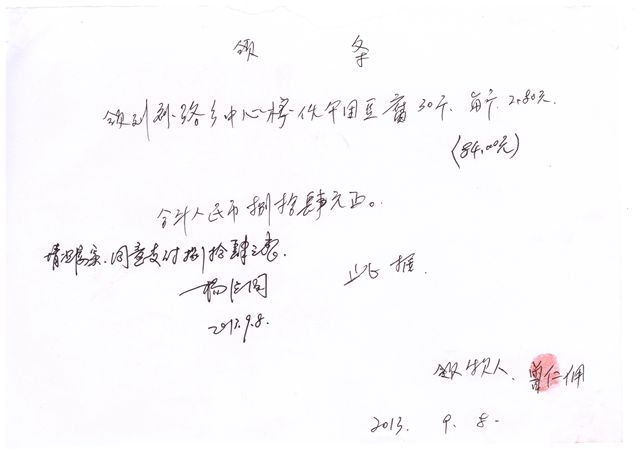 领 条
领到孙路乡中心校伙用豆腐30斤. 每斤 2.80元.
(84.00元)
合计人民币捌拾肆元正。
情况属实. 同意支付捌拾肆元整.
此据.
2013.9.8.
领款人. 曾仁佣
2013. 9. 8.